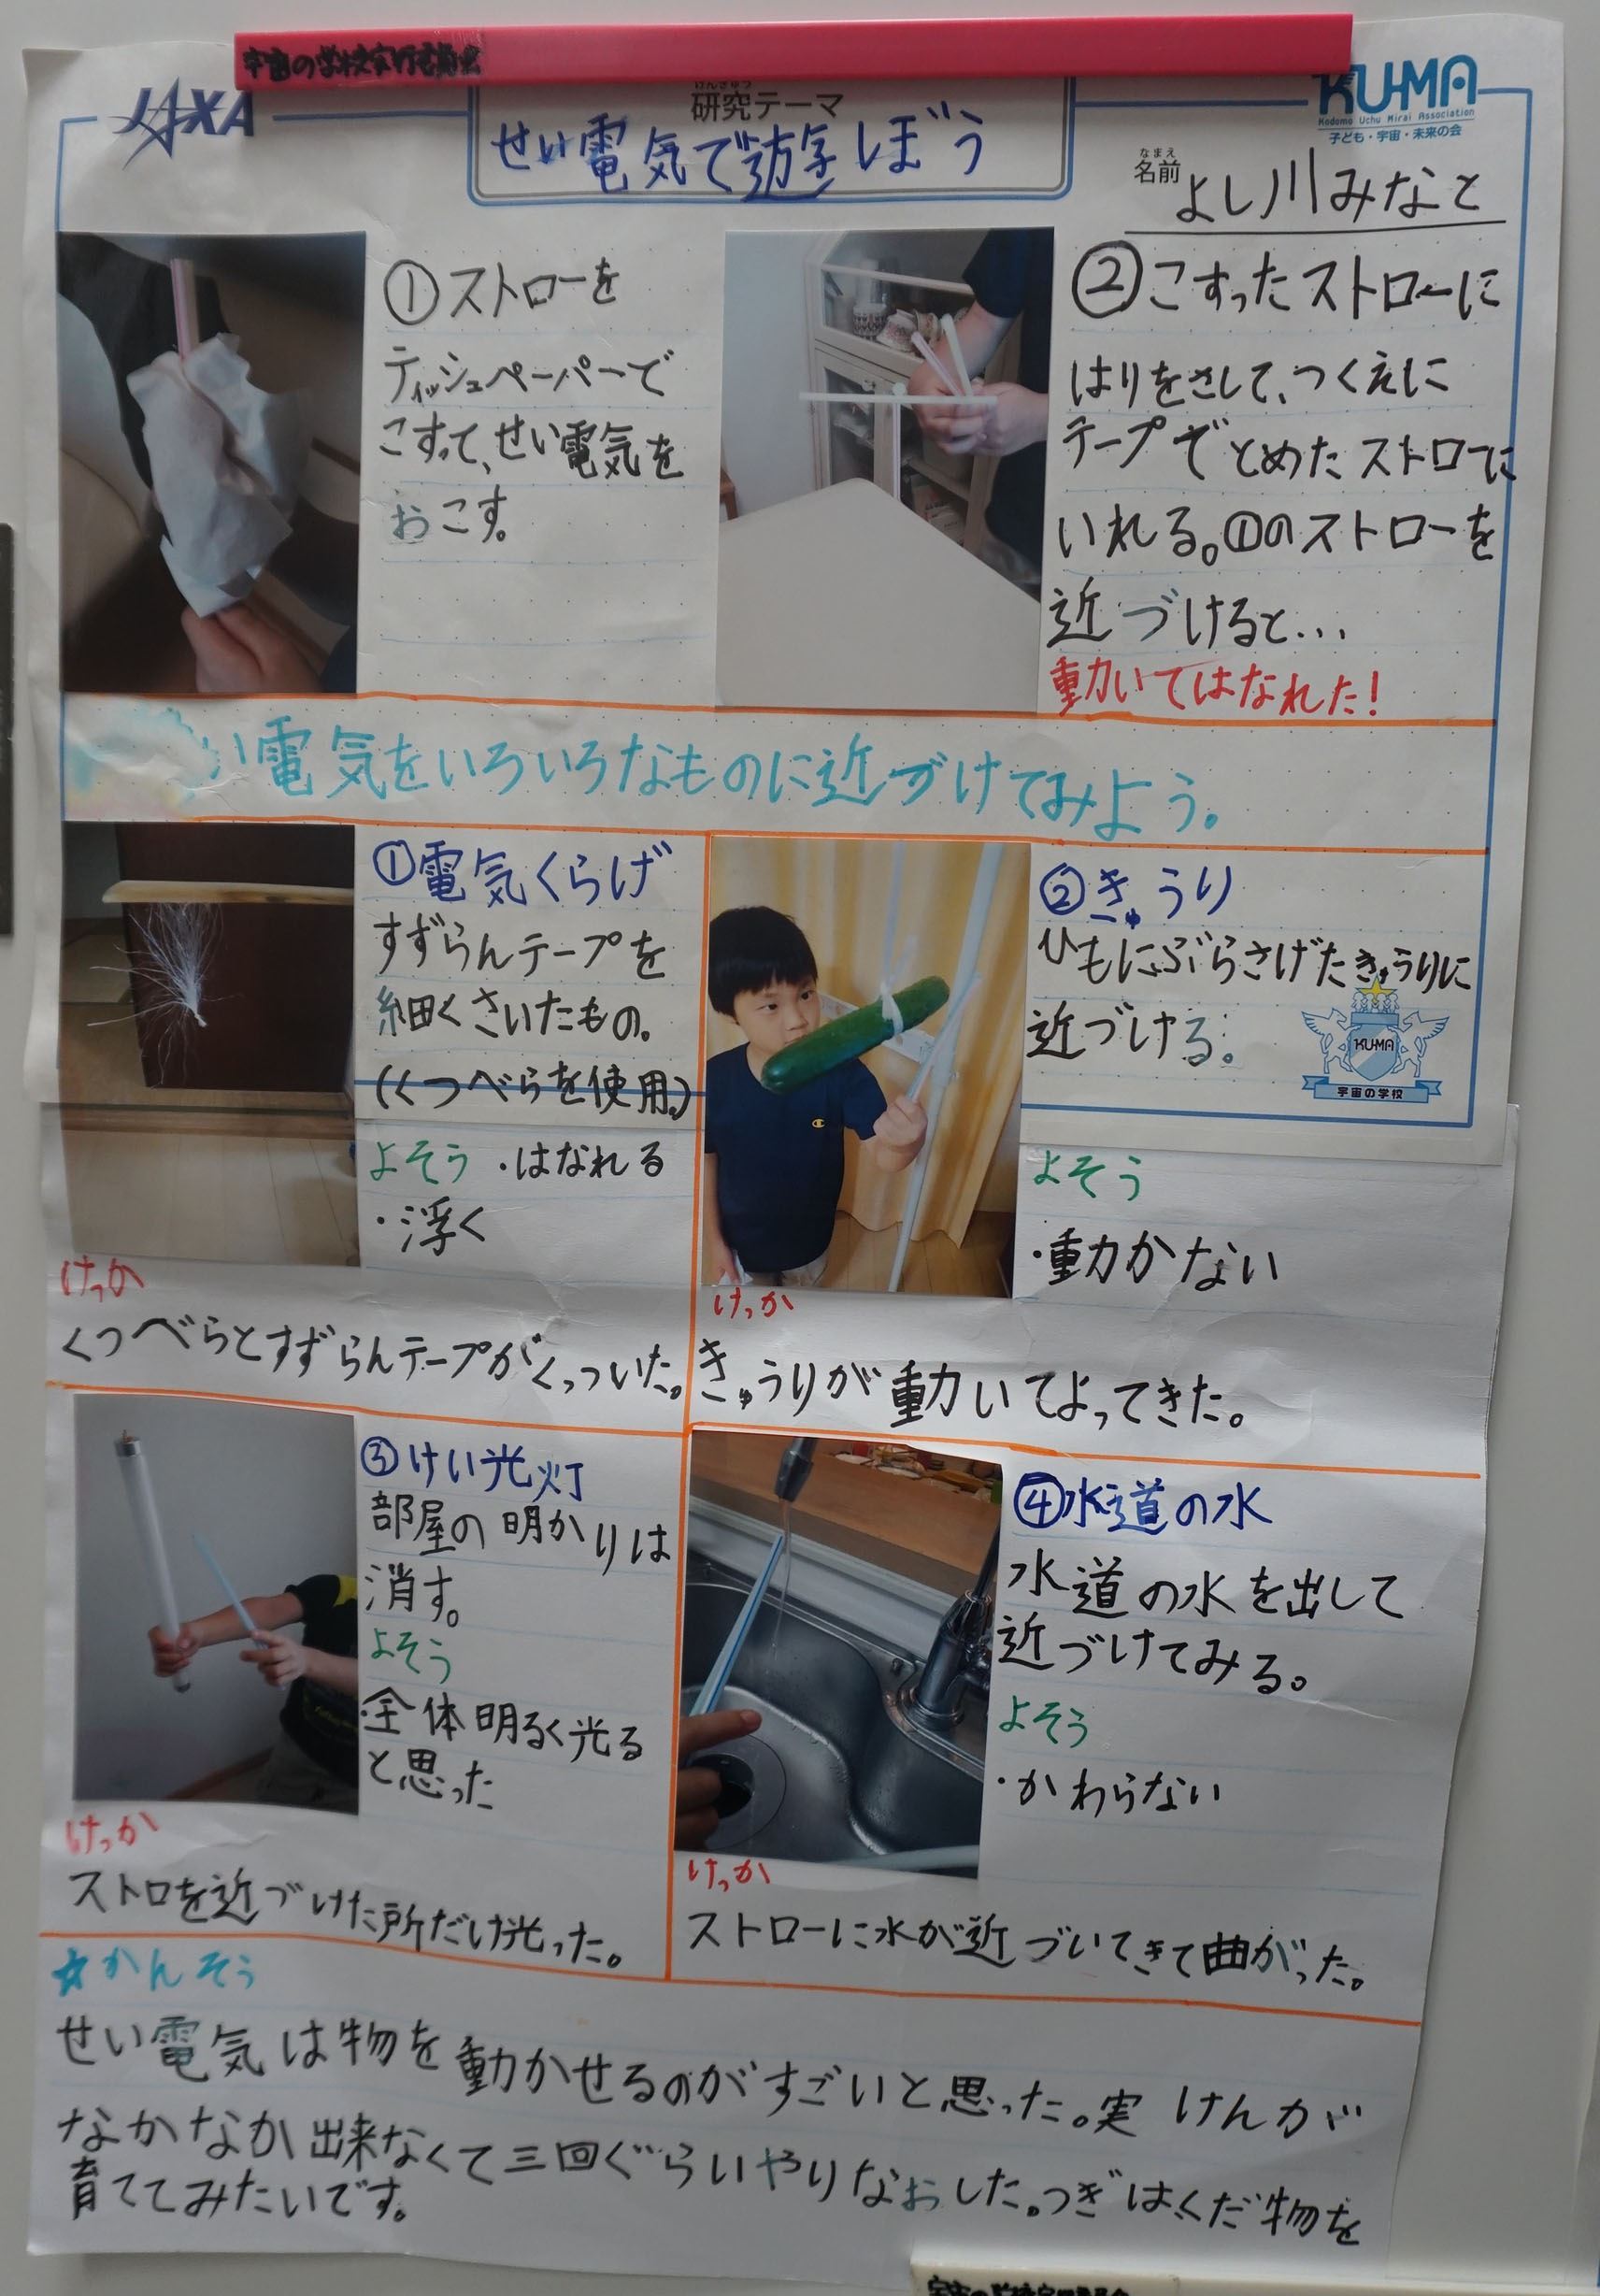 宇宙の学校実行委員会
JAXA
けんきゅう
研究テーマ
せい電気で遊ぼう
KU-MA
Kodomo Uchu Mirai Association
子ども・宇宙・未来の会
なまえ
名前
よし川みなと
①ストローを
ティッシュペーパーで
こすって、せい電気を
おこす。
②こすったストローに
はりをさして、つくえに
テープでとめたストローに
いれる。①のストローを
近づけると…
動いてはなれた!
い電気をいろいろなものに近づけてみよう。
①電気くらげ
すずらんテープを
細くさいたもの。
(くつべらを使用。)
よそう ・はなれる
・浮く
けっか
くつべらとすずらんテープがくっついた。
②きゅうり
ひもにぶらさげたきゅうりに
近づける。
KU-MA
宇宙の学校
よそう
・動かない
けっか
きゅうりが動いてよってきた。
③けい光灯
部屋の明かりは
消す。
よそう
・全体明るく光る
と思った
けっか
ストロを近づけた所だけ光った。
④水道の水
水道の水を出して
近づけてみる。
よそう
・かわらない
けっか
ストローに水が近づいてきて曲がった。
☆かんそう
せい電気は物を動かせるのがすごいと思った。実けんが
なかなか出来なくて三回ぐらいやりなおした。つぎはくだ物を
育ててみたいです。